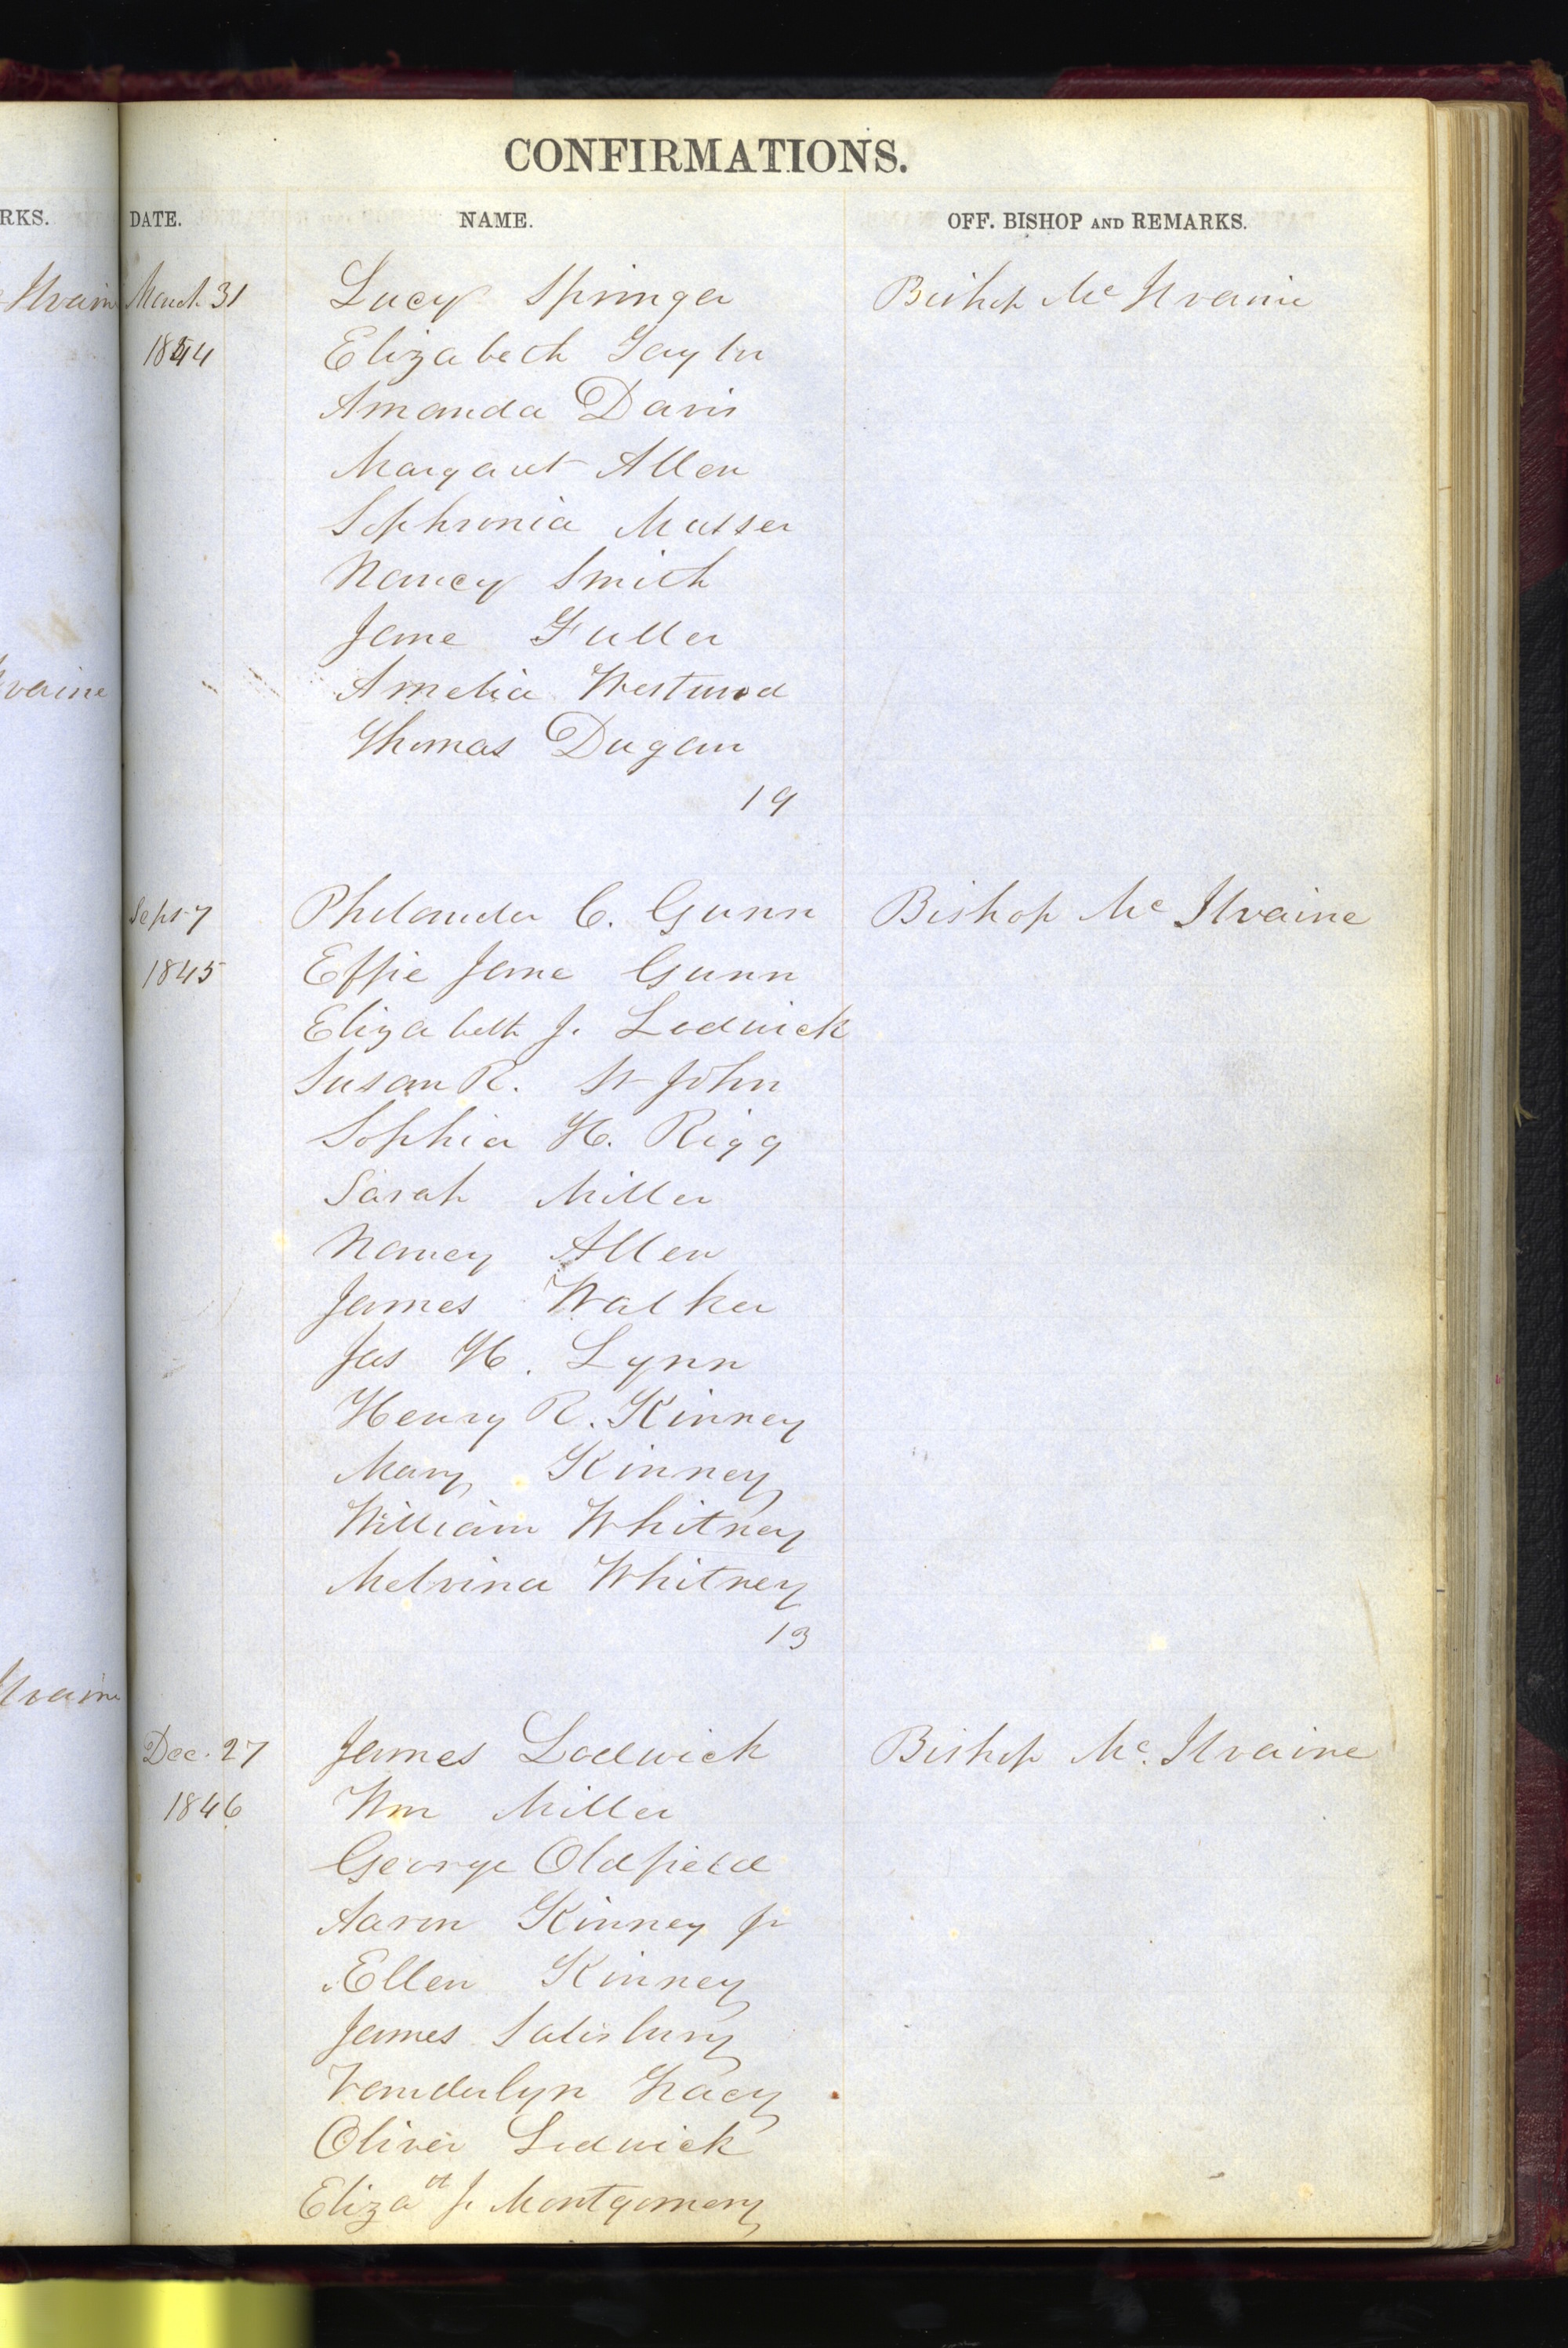 CONFIRMATIONS.
RKS. DATE. NAME. OFF. BISHOP AND REMARKS.
March 31 Lucy Springer Bishop Mc Ilvaine
1844 Elizabeth Taylor
Amanda Davis
Margaret Allen
Sophronia Musser
Nancy Smith
Jane Fuller
Amelia Westwood
Thomas Dugan
19
Sept 7 Philander C. Gunn Bishop Mc Ilvaine
1845 Effie Jane Gunn
Elizabeth J. Lodwick
Susan R. St John
Sophia H. Rigg
Sarah Miller
Nancy Allen
James Walker
Jas H. Lynn
Henry R. Kinney
Mary Kinney
William Whitney
Melvina Whitney
13
Dec. 27 James Lodwick Bishop Mc. Ilvaine
1846 Wm Miller
George Oldfield
Aaron Kinney Jr
Ellen Kinney
James Salisbury
Vanderlyn Tracy
Oliver Lodwick
Elizath J. Montgomery